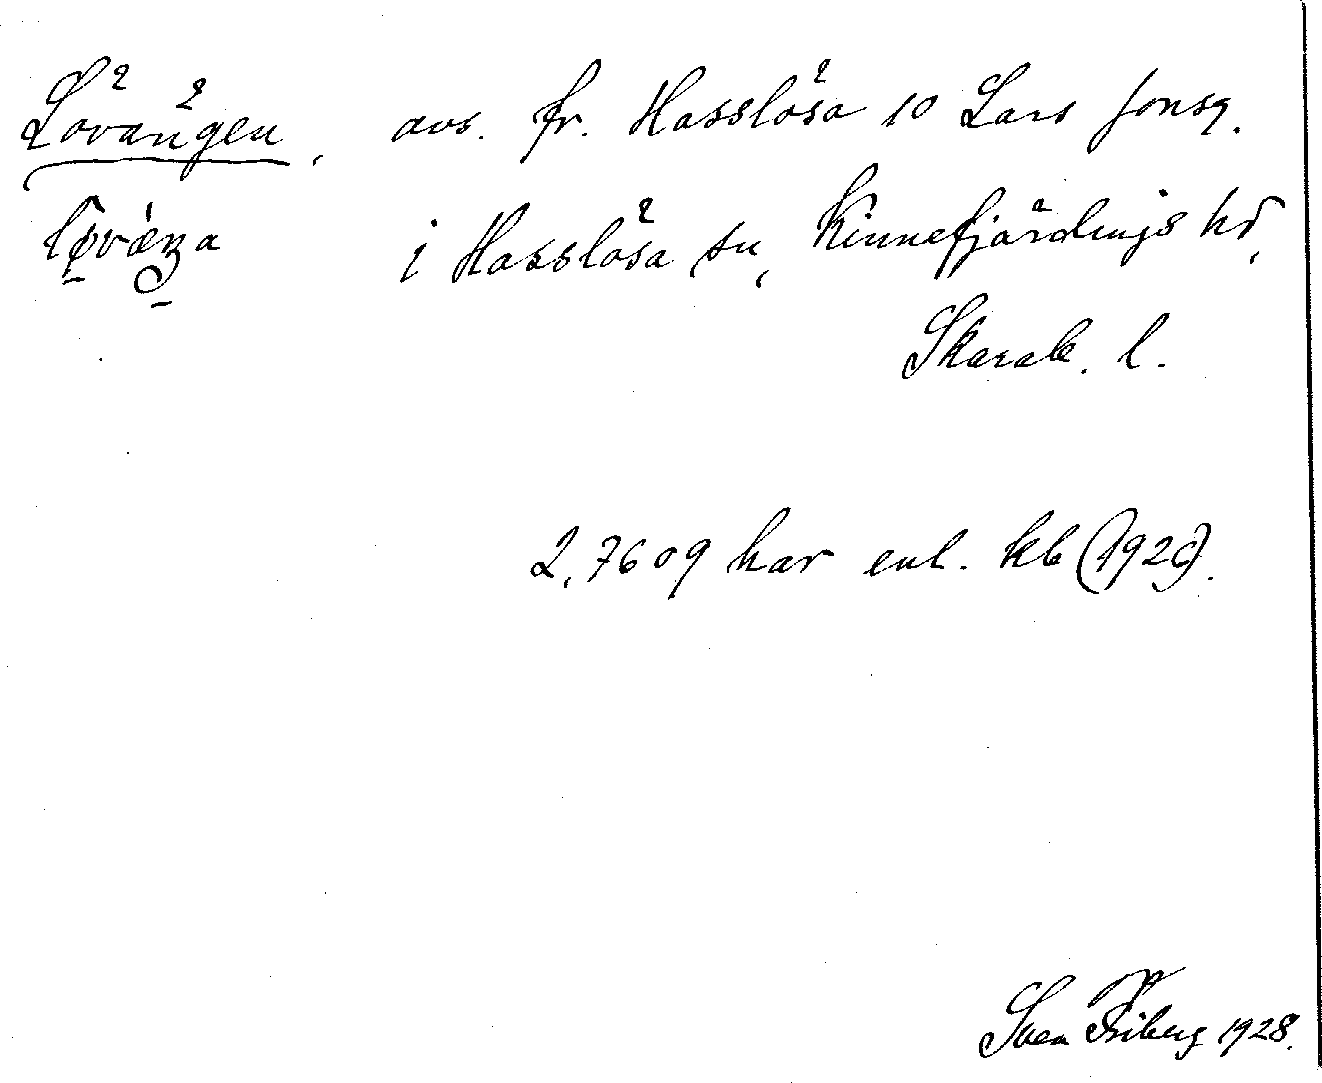 Lövängen, avs. fr. Hasslösa 10 Lars Jonsg.
i Hasslösa sn, Kinnefjärdings hd,
Skarab. l.
2,7609 har enl. kb (1926).
Sven Friberg 1928.